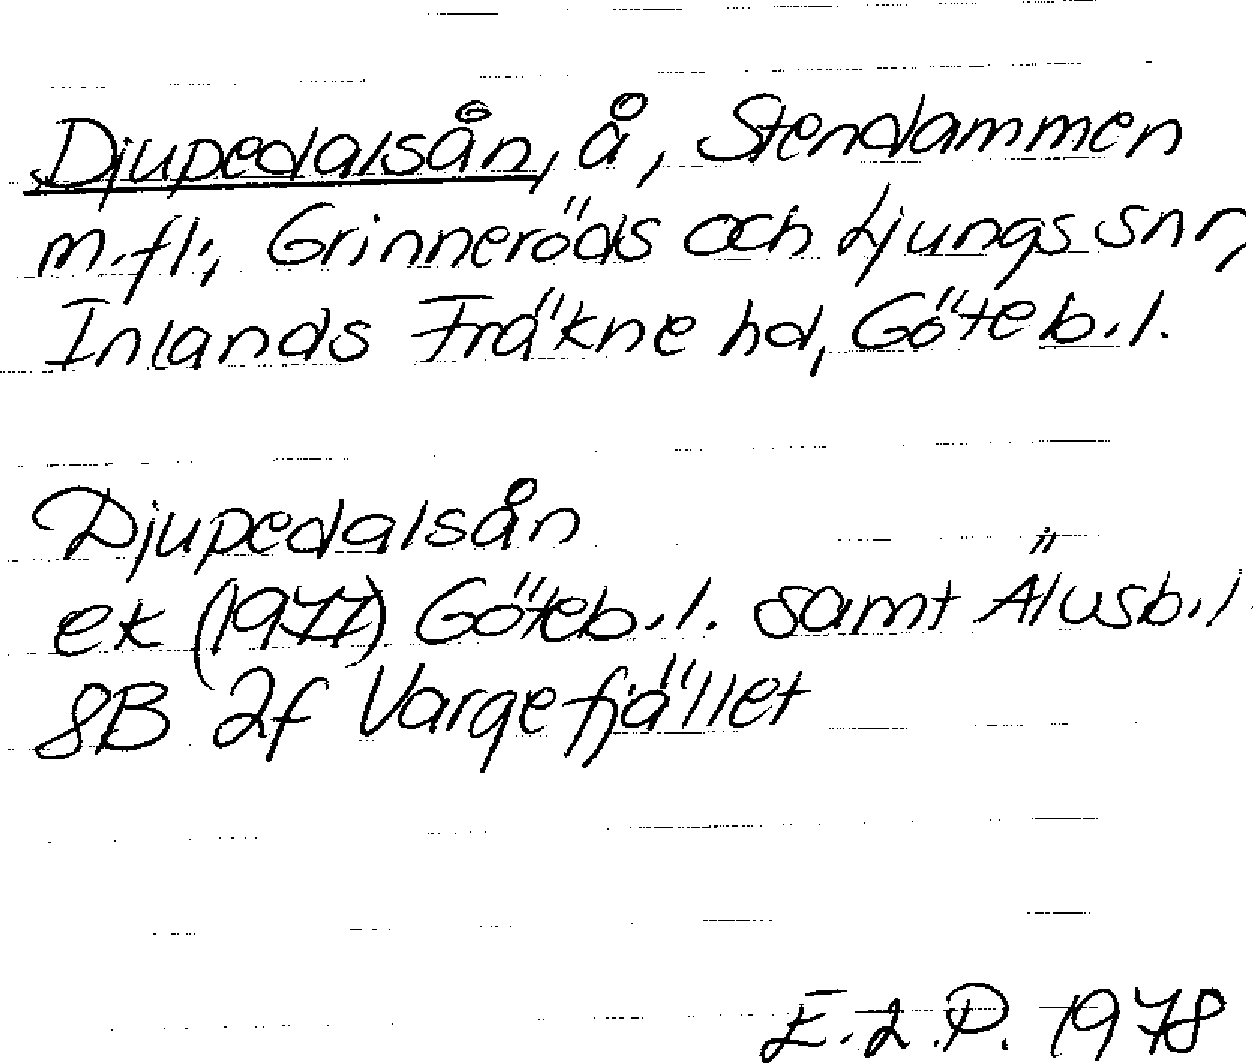 Djupedalsån, å, Stendammen
m.fl., Grinneröds och Ljungs snr,
Inlands Fräkne hd, Göteb.l.
Djupedalsån
ek (1977) Göteb.l. samt Älvsb.l
8B 2f Vargefjället
E.L.P. 1978